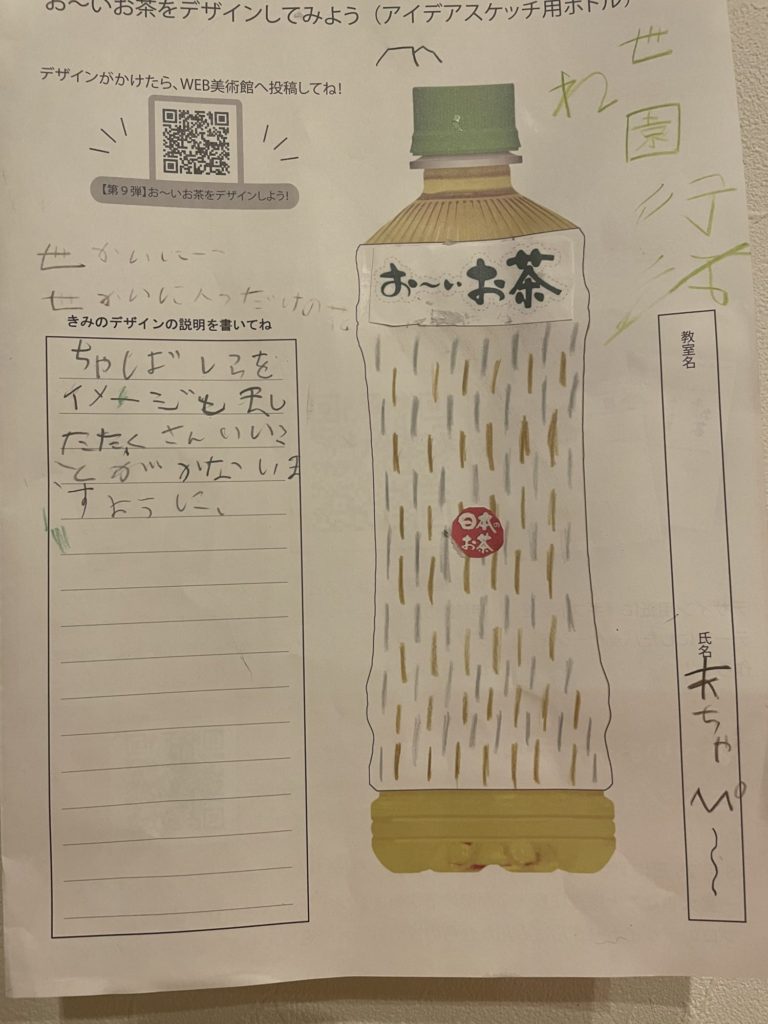 お～いお茶をデザインしてみよう（アイデアスケッチ用ボトル）
デザインがかけたら、WEB美術館へ投稿してね！
【第９弾】お～いお茶をデザインしよう！
世
れ
園
行
世かいに一
世かいに一つだけの
お～いお茶
きみのデザインの説明を書いてね
ちゃしばしらを
イメージも
たたくさんいいこ
とががかないま
すように、
日本の
お茶
教室名
氏名
ちゃ
～